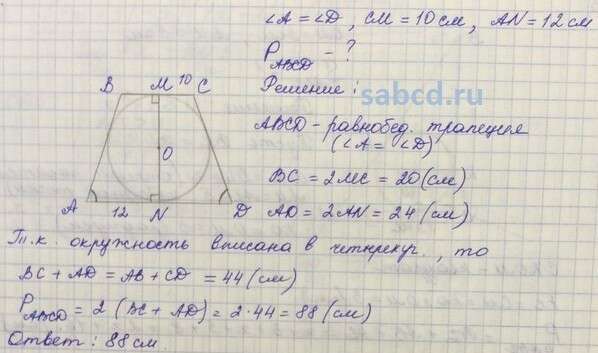 ∠A = ∠D, CM = 10 см, AN = 12 см
P ABCD - ?
Решение:
sabcd.ru
ABCD - равнобед. трапеция
(∠A = ∠D)
BC = 2MC = 20 (см)
AD = 2AN = 24 (см)
B M 10 C
O
A 12 N D
Т.к. окружность вписана в четырехуг., то
BC + AD = AB + CD = 44 (см)
P ABCD = 2 (BC + AD) = 2·44 = 88 (см)
Ответ: 88 см.